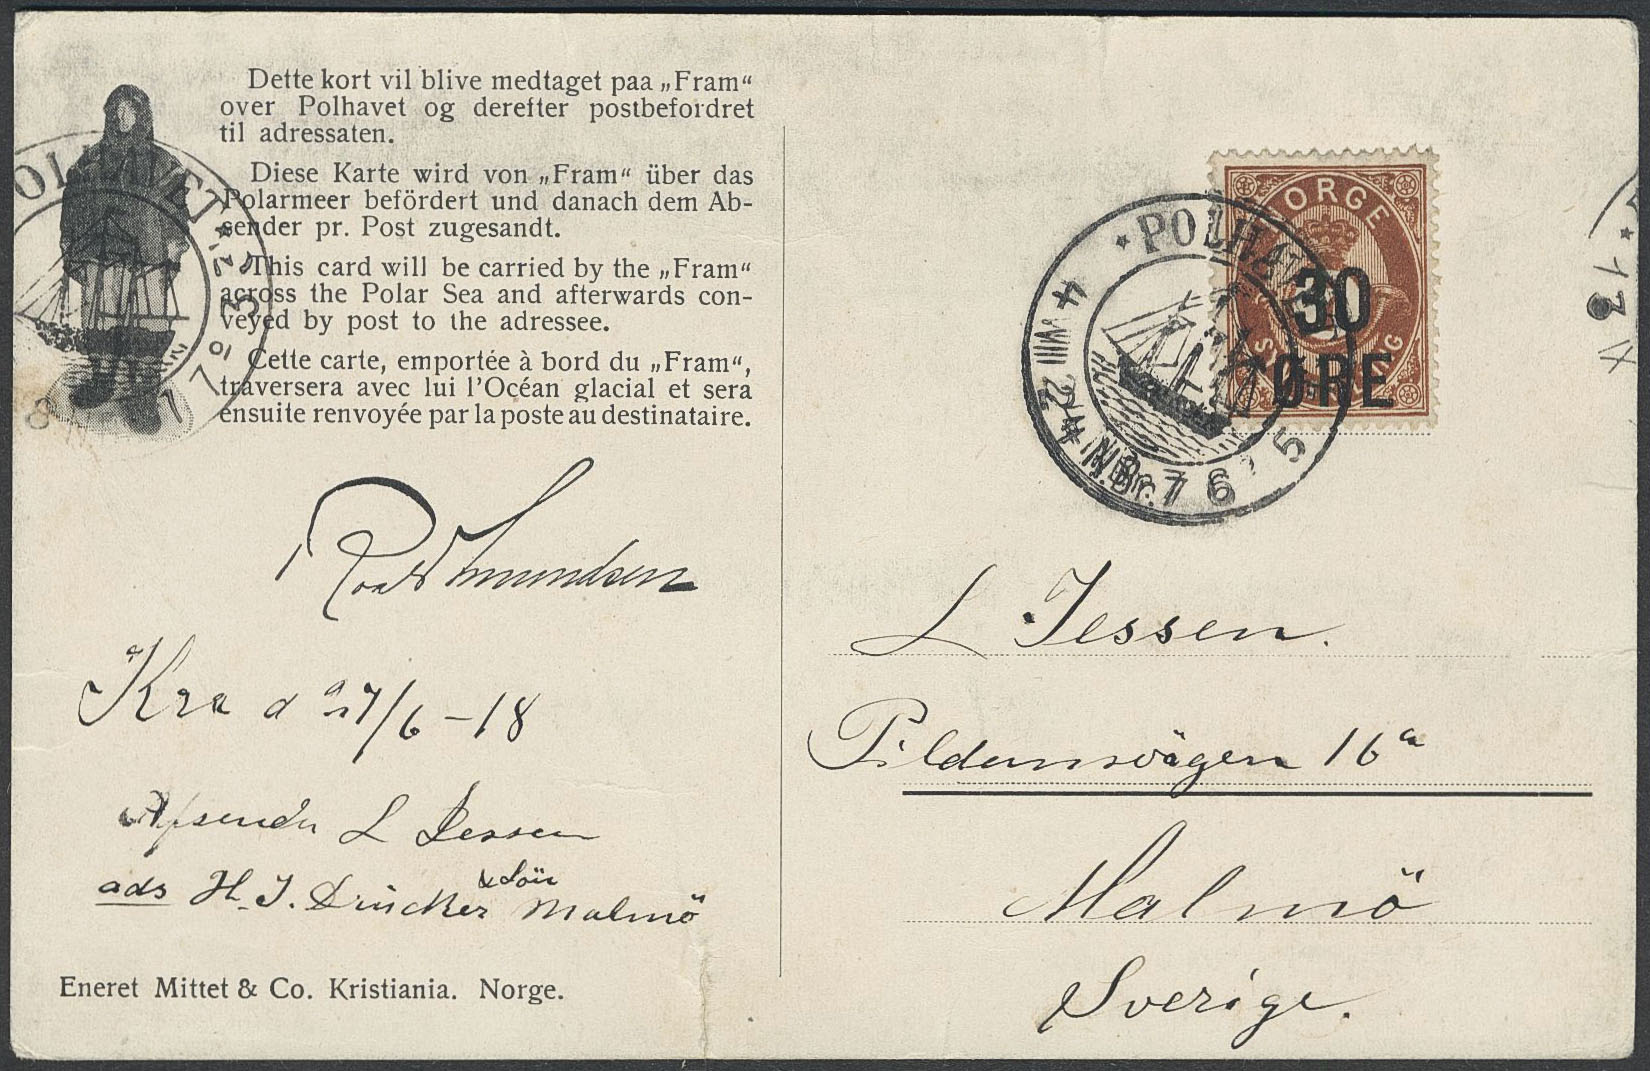 Dette kort vil blive medtaget paa „Fram“
over Polhavet og derefter postbefordret
til adressaten.
Diese Karte wird von „Fram“ über das
Polarmeer befördert und danach dem Ab-
sender pr. Post zugesandt.
This card will be carried by the „Fram“
across the Polar Sea and afterwards con-
veyed by post to the adressee.
Cette carte, emportée à bord du „Fram“,
traversera avec lui l'Océan glacial et sera
ensuite renvoyée par la poste au destinataire.
POLHAVET
Roald Amundsen
Kra d 27/6 - 18
Afsender L Jessen
ads H. J. Drücker Malmö
Eneret Mittet & Co. Kristiania. Norge.
NORGE
30
ØRE
POLHAVET
VIII 22
L Jessen.
Pildamsvägen 16a
Malmö
Sverige.